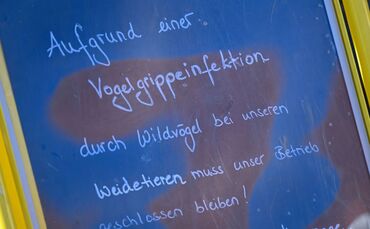 Aufgrund einer
Vogelgrippeinfektion
durch Wildvögel bei unseren
Weidetieren muss unser Betrieb
geschlossen bleiben!